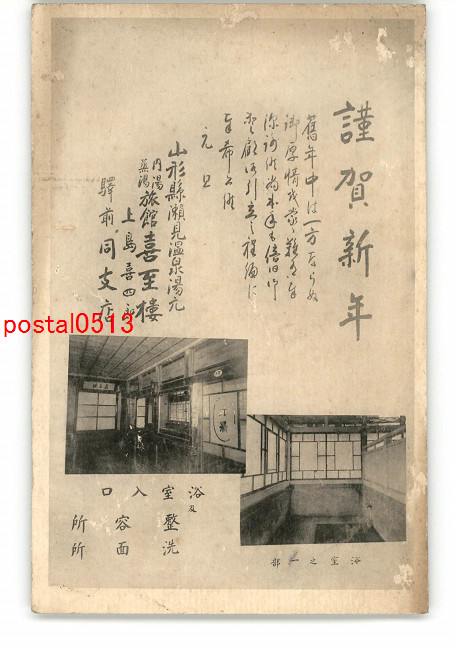 謹賀新年
舊年中は一方ならぬ
御厚情を蒙り難有奉
深謝候尚本年も倍旧ノ
愛顧御引立之程偏に
奉希上候
元旦
山形縣瀬見温泉湯元
内湯
蒸湯
旅館喜至樓
上島喜四郎
驛前同支店
postal0513
浴室入口
及
整容所
洗面所
浴室之一部